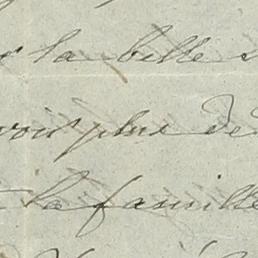 la bille
voir plus de
la famille